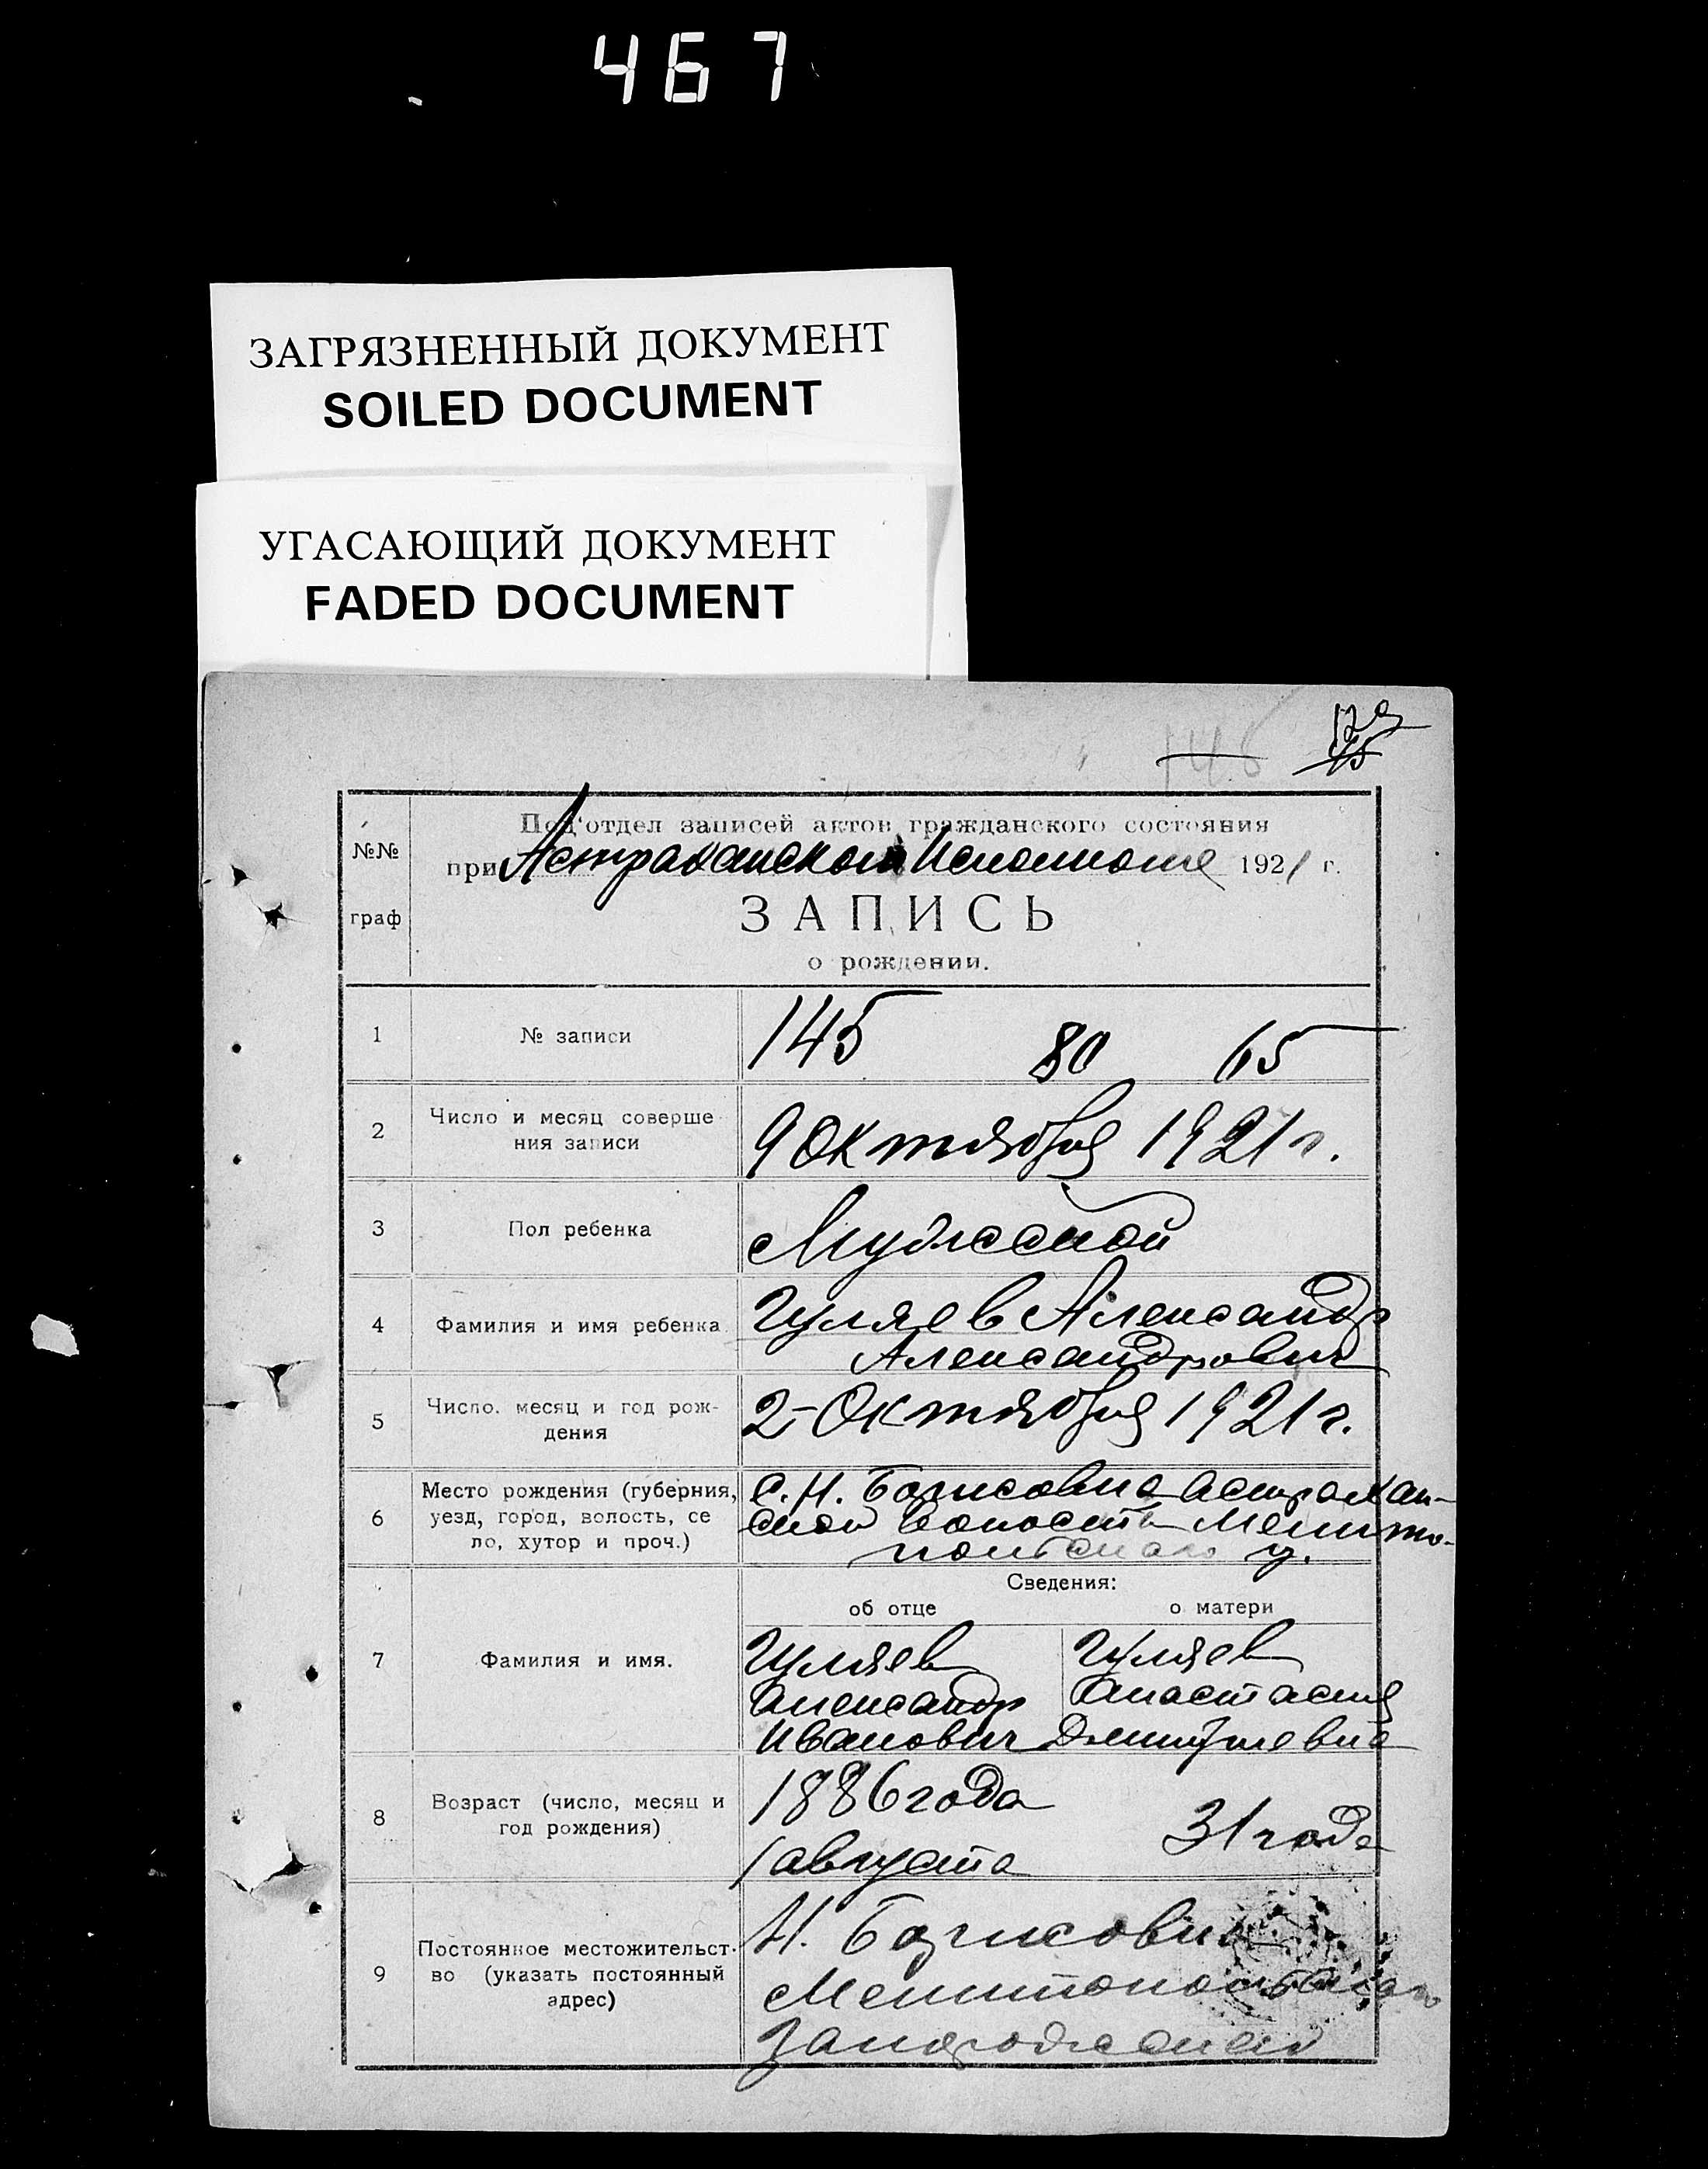 467
ЗАГРЯЗНЕННЫЙ ДОКУМЕНТ
SOILED DOCUMENT
УГАСАЮЩИЙ ДОКУМЕНТ
FADED DOCUMENT
145
№№ граф
Под'отдел записей актов гражданского состояния
при Астраханском Исполкоме 1921 г.
ЗАПИСЬ
о рождении.
1 № записи 145 80 65
2 Число и месяц соверше
ния записи
9 Октября 1921 г.
3 Пол ребенка Мужской
4 Фамилия и имя ребенка Гуляев Александр
Александрович
5 Число. месяц и год рож-
дения
2-Октября 1921 г.
6 Место рождения (губерния,
уезд, город, волость, се
ло, хутор и проч.)
с. Н. Богисовка Астрахан-
ской волости Мелито-
польского у.
Сведения:
об отце о матери
7 Фамилия и имя.
Гуляев Гуляев
Александр Анастасия
Иванович Дмитриевна
8 Возраст (число, месяц и
год рождения)
1886 года 31 года
1 августа
9 Постоянное местожительст-
во (указать постоянный
адрес)
Н. Богисовка
Мелитопольского
Запорожской